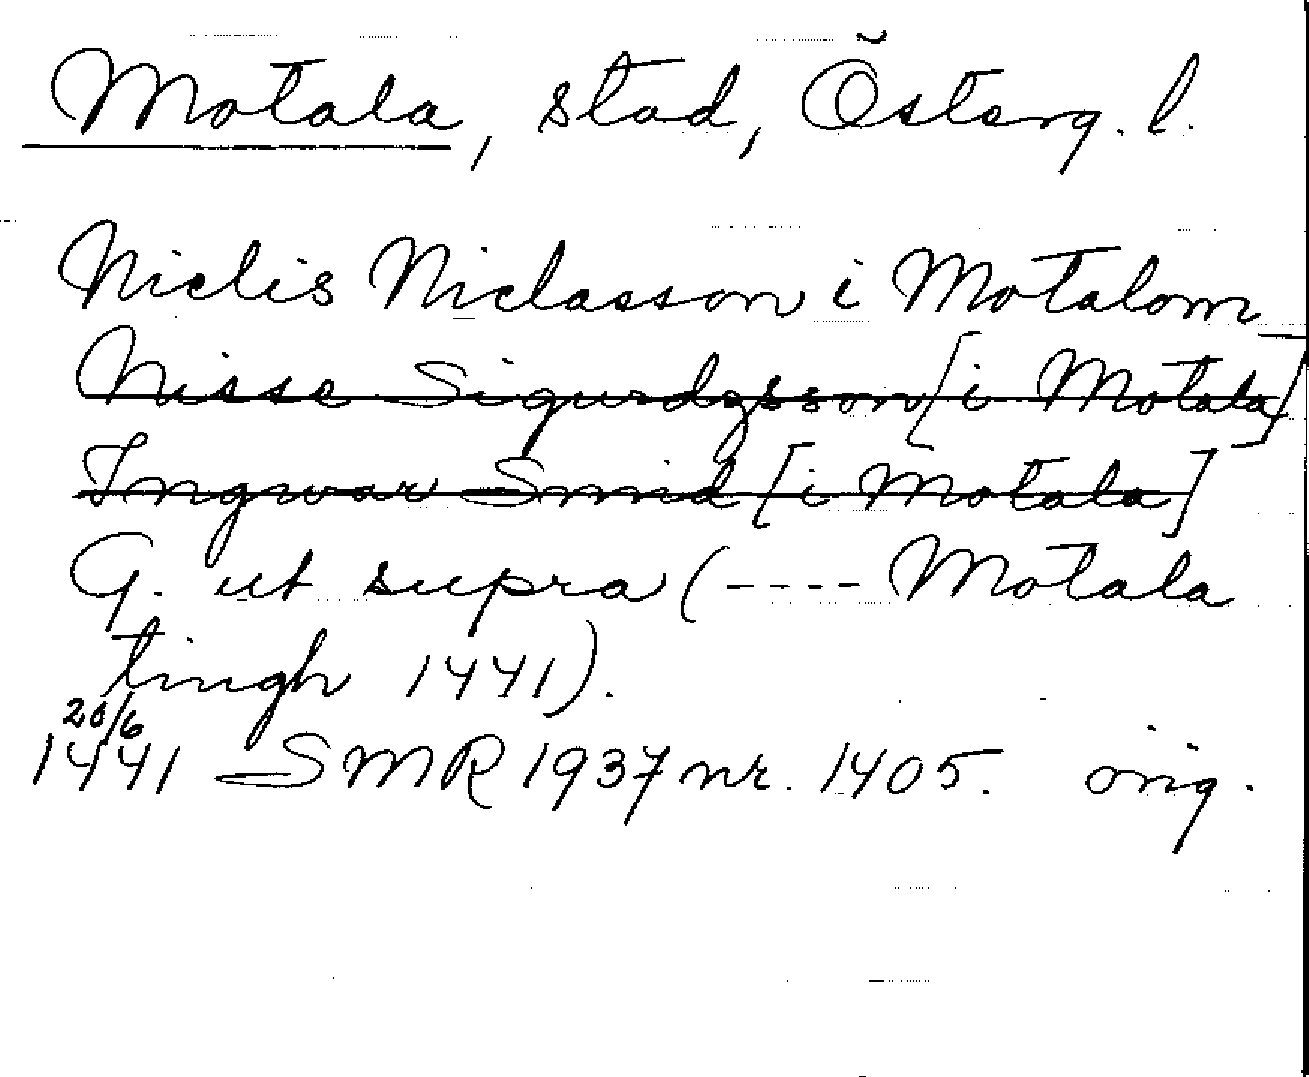 Motala, stad, Österg. l.
Niclis Niclasson i Motalom
Nisse Sigurdzsson [i Motala]
Ingwar Smid [i Motala]
G. ut supra (---- Motala
tingh 1441).
20/6
1441 SMR 1937 nr. 1405. orig.